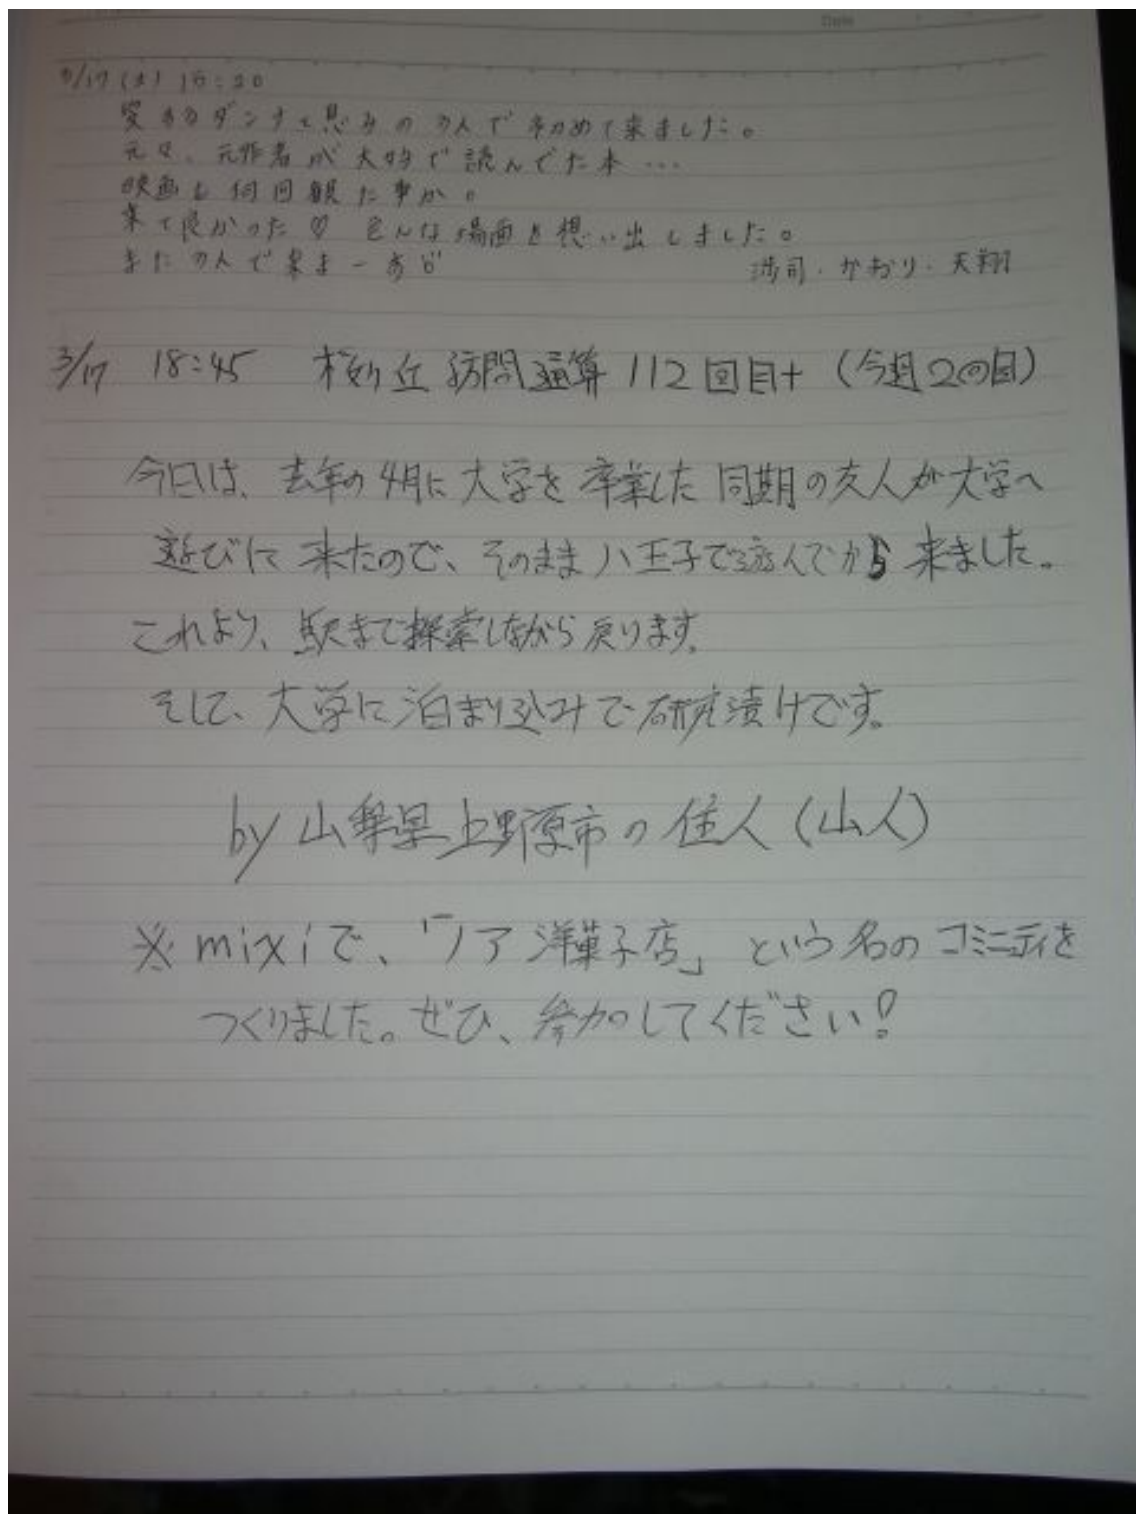 Date
3/17 (土) 15:20
愛するダンナと息子の3人で初めて来ました。
元々、元作者が大好で読んでた本…
映画も何回観た事か。
来て良かった♡ 色んな場面を想い出しました。
また3人で来まーす
かおり・天翔
3/17 18:45 桜ヶ丘訪問通算112回目+(今週2の目)
今日は、去年の4月に大学を卒業した同期の友人が大学へ
遊びに来たので、そのまま八王子で遊んでから来ました。
これより、駅まで探索しながら戻ります。
そして、大学に泊まり込みで研究漬けです。
by 山梨県上野原市の住人(山人)
※mixiで、「ノア洋菓子店」という名のコミニティを
つくりました。ぜひ、参加してください!